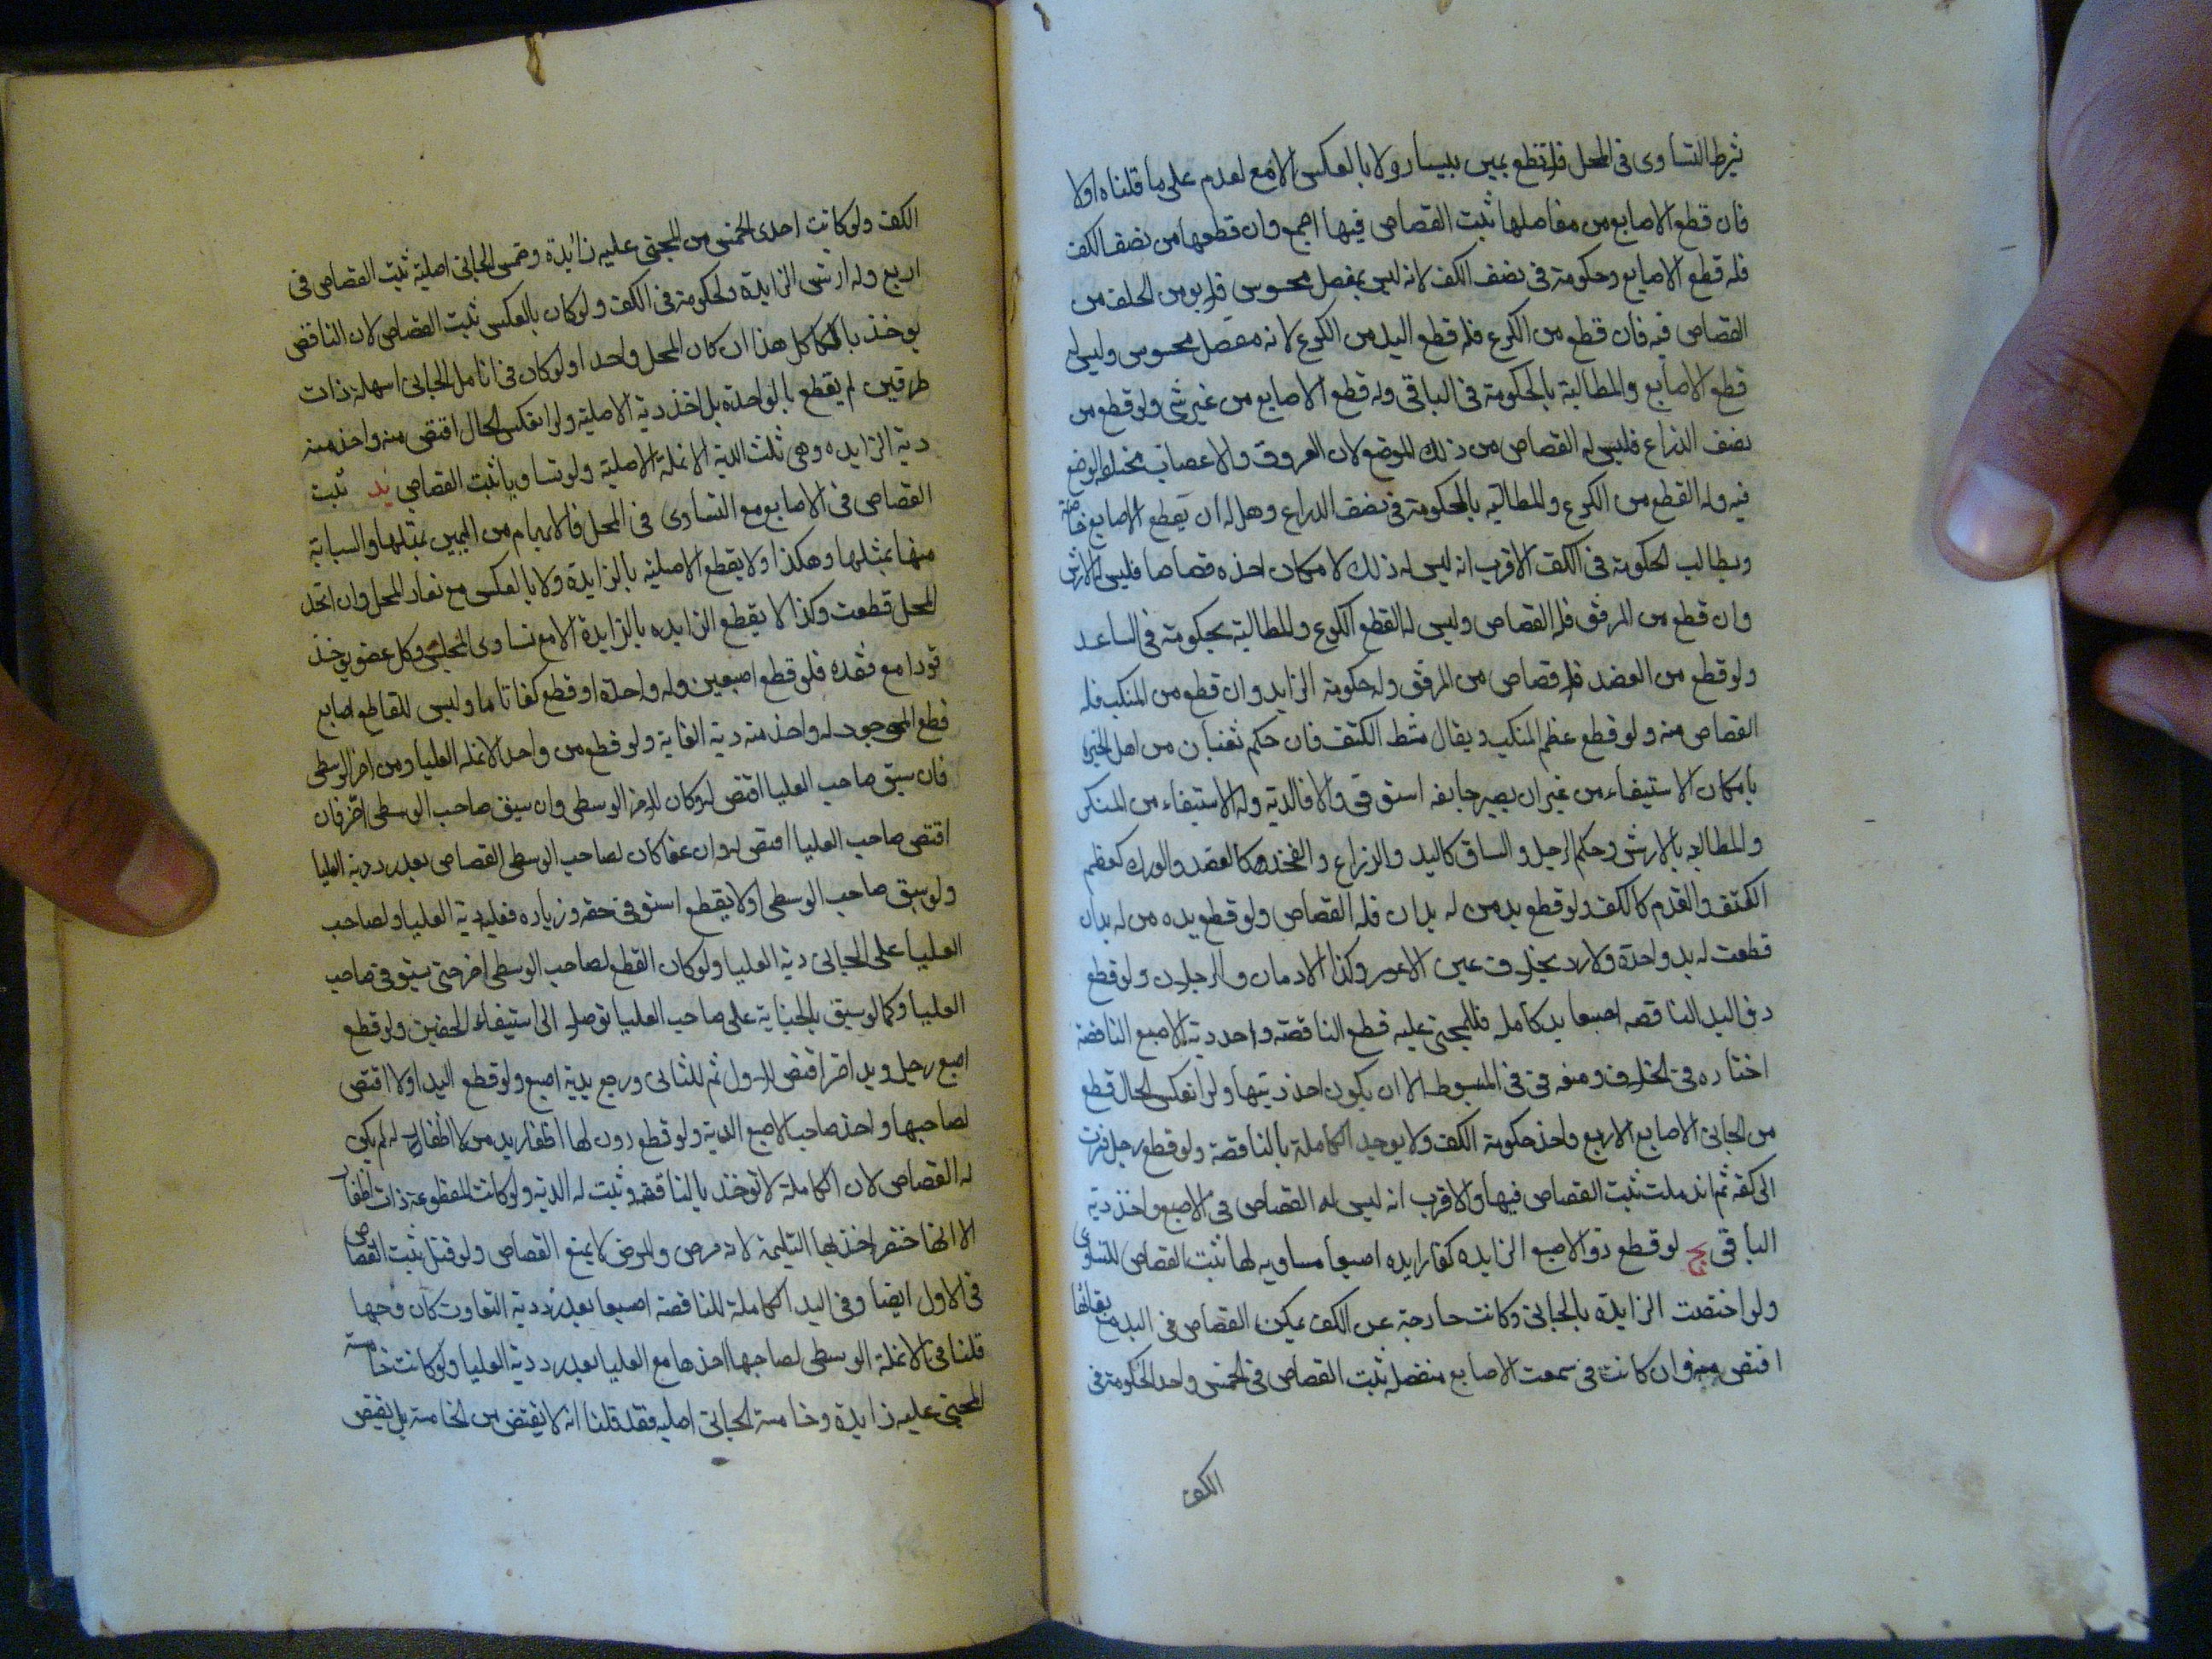 شرط التساوى فى المحل فلا تقطع يمين بيسار ولا بالعكس الا مع لعدم على ما قلناه اولا
فان قطع الاصابع من مفاصلها ثبت القصاص فيها اجمع وان قطعها من نصف الكف
فله قطع الاصابع وحكومة فى نصف الكف لانه ليس بمفصل محسوس فلا يومن الحلف من
القصاص فيه فان قطع من الكوع فله قطع اليد من الكوع لانه مفصل محسوس وليس له
قطع الاصابع والمطالبة بالحكومة فى الباقى وله قطع الاصابع من غير شى ولو قطع من
نصف الذراع فليس له القصاص من ذلك الموضع لان العروق والاعصاب مختلط الوضع
فيه وله القطع من الكوع والمطالبة بالحكومة فى نصف الذراع وهل له ان يقطع الاصابع خاصة
ويطالب لحكومة فى الكف الاقرب انه ليس له ذلك لامكان اخذه قصاصا فليس له الارش
وان قطع من المرفق فله القصاص وليس له القطع الكوع والمطالبة بحكومة فى الساعد
ولو قطع من العضد فله قصاص من المرفق وله حكومة الزايد وان قطع من المنكب فله
القصاص منه ولو قطع عظم المنكب ويقال مشط الكتف فان حكم ثقتان من اهل الخبرة
بامكان الاستيفاء من غير ان يصير جايفه استوفى والا فالدية وله الاستيفاء من المنكب
والمطالبه بالارش وحكم الرجل والساق كاليد والذراع والفخذ كالعضد والورك كعظم
الكتف والقدم كالكف ولو قطع يد من له يدان فله القصاص ولو قطع يده من له يدان
قطعت له يد واحدة ولا رد بخلاف عين الاعور وكذا الادمان والرجلان ولو قطع
ذى اليد الناقصه اصبعا يد كامله فللمجنى عليه قطع الناقصة واخد دية الاصبع الناقصة
اختاره فى الخلاف ومنعه فى المبسوط الا ان يكون اخذ ديتها ولو انعكس الحال قطع
من الجانى الاصابع الاربع واخذ حكومة الكف ولا يوخد الكاملة بالناقصة ولو قطع رجل فسرت
الى كفه ثم اندملت ثبت القصاص فيها والاقرب انه ليس له القصاص فى الاصبع واخذ دية
الباقى يج لو قطع ذو الاصبع الزايده كفا زايده اصبعا مساويه لها ثبت القصاص للتساوى
ولو اختصت الزايدة بالجانى وكانت خارجة عن الكف يمكن القصاص فى اليد مع بقائها
اقتص منه وان كانت فى سمت الاصابع منفصله ثبت القصاص فى الخمس واخد الحكومة فى
الكف
الكف ولو كانت احدى الخمس من المجنى عليه زايدة وخمس الجانى اصلية ثبت القصاص فى
اربع وله ارش الزايدة ولحكومة فى الكف ولو كان بالعكس ثبت القصاص لان الناقص
يوخذ بالكامل هذا ان كان المحل واحدا ولو كان فى انامل الجانى انملة ذات
طرفين لم يقطع بالواحدة بل اخذ دية الاصلية ولو انعكس الحال اقتص منه واخذ منه
دية الزايده وهى ثلث الدية الانملة الاصلية ولو تساويا ثبت القصاص يد ثبت
القصاص فى الاصابع مع التساوى فى المحل فالابهام من اليمين بمثلها والسبابة
منها بمثلها وهكذا ولا يقطع الاصلية بالزايدة ولا بالعكس مع تغاير المحل وان اتحد
المحل قطعت وكذا لا يقطع الزايده بالزايدة الا مع تساوى المحلين وكل عضو يوخذ
قودا مع فقده فلو قطع اصبعين وله واحدة او قطع كفا تاما وليس للقاطع اصابع
قطع الموجود له واخذ منه دية الفاية ولو قطع من واحد الانمله العليا ومن اخر الوسطى
فان سبق صاحب العليا اقتص له وكان للاخر الوسطى وان سبق صاحب الوسطى اخر فان
اقتص صاحب العليا اقتص له وان عفا كان لصاحب الوسطى القصاص بعد رد دية العليا
ولو سبق صاحب الوسطى اولا بقطع استوفى حقه وزياده فعليه دية العليا ولصاحب
العليا على الجانى دية العليا ولو كان القطع لصاحب الوسطى اخر حتى يستوفى صاحب
العليا وكما لو سبق بالجناية على صاحب العليا توصلا الى استيفاء الحقين ولو قطع
اصبع رجل ويد اخر اقتص للاول ثم للثانى ورجع بدية اصبع ولو قطع اليد اولا اقتص
لصاحبها واخذ صاحب الاصبع الدية ولو قطع ذون لها اظفار يد من لا اظفار له لم يكن
له القصاص لان الكاملة لا توخذ بالناقصة وثبت له الدية ولو كانت المقطوعة ذات اظفار
الا انها خضر اخذ بها السليمة لانه مرض والمرض لا يمنع القصاص ولو قيل بثبت القصاص
فى الاول ايضا وفى اليد الكاملة للناقصة اصبعا بعد رد دية التفاوت كان وجها
قلنا فى الانملة الوسطى لصاحبها اخذها مع العليا بعد رد دية العليا ولو كانت خامسة
المجنى عليه زايدة وخامسة الجانى اصليه فقد قلنا انه لا يقتص من الخامسة بل يقتص